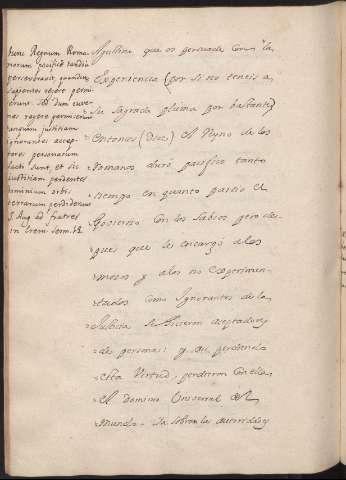 tunc Regnum Roma
norum pacifice tandiu
perseveravit, quandiu
sapientes regere permi
serunt. At dum iuve
nes regere permiserunt
tanquam justitiam
ignorantes accep
tores personarum
facti sunt, et sic
justitiam perdentes
dominium orbis
terrarum perdiderunt
S. Aug. ad fratres
in erem. serm.
Agustino que os persuada con la
Experiencia (por si no teneis a
su sagrada pluma por bastante)
Entonces (dice) el Reyno de los
Romanos duró pacifico tanto
tiempo en quanto partio el
Govierno con los Sabios pero des-
pues que le encargó a los
mozos y a los no experimen-
tados como Ignorantes de la
Justicia se hicieron aceptadores
de personas: y asi perdiendo
esta Virtud, perdieron con ella
el dominio Universal del
Mundo. Ya sobran las autoridades